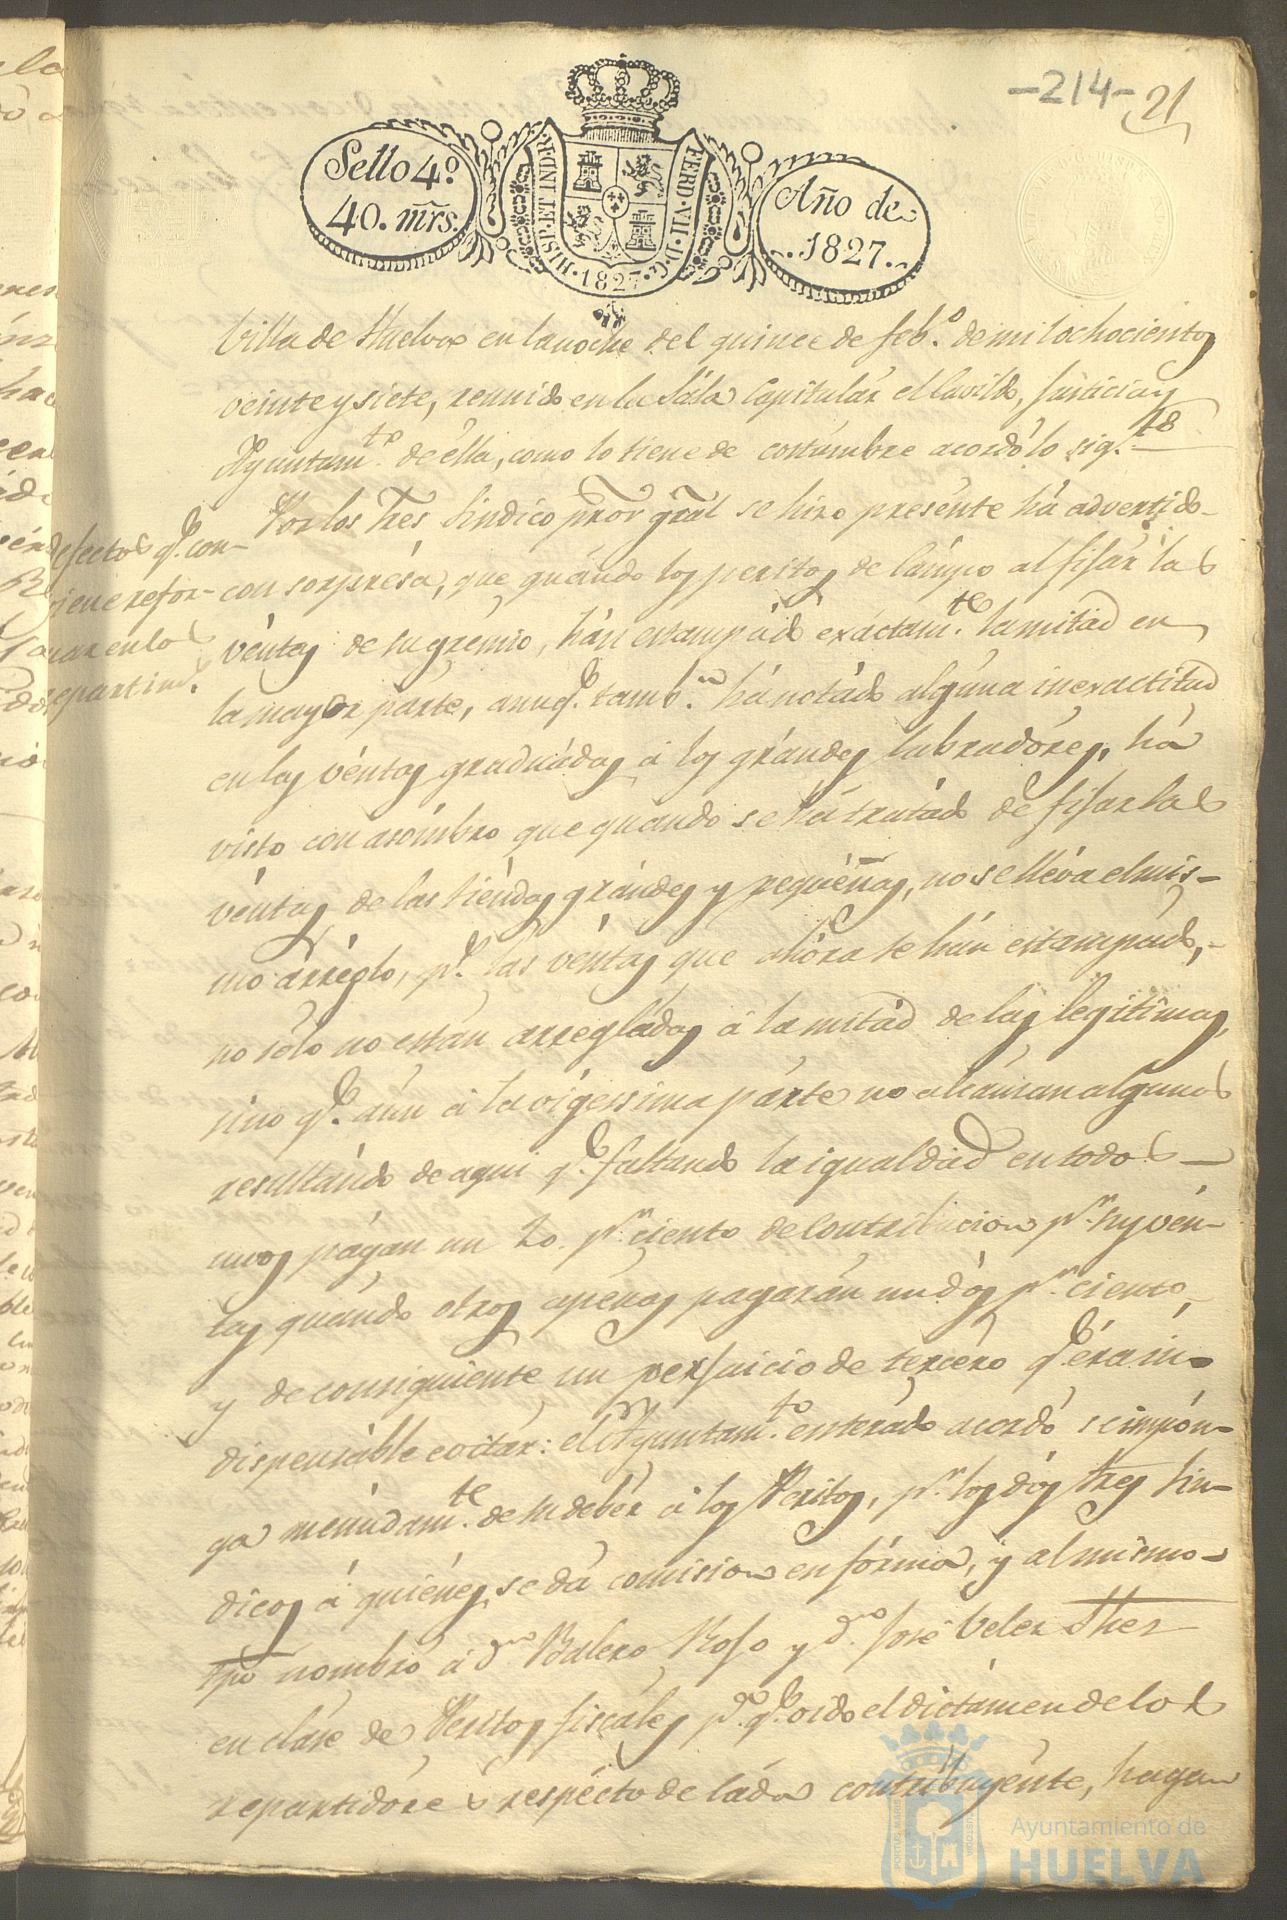 -214- 21
Sello 4º.
40. mr̃s.
HISP. ET IND. R. 1827 FERD. VII. D. G.
Año de
1827.
Villa de Huelva en la noche del quince de febº. de mil ochocientos
veinte y siete, reunido en la Sála Capitulár el Cavildo, Justicia y
Ayuntamto. de élla, como lo tiene de costúmbre acordó lo sigte.
Por los Sres Sindico pror gral se hizo presénte há advertido
con sorpresa, que quándo los peritos de Cámpo al fijár las
véntas de su grémio, hán estampádo exáctamte. la mitad en
la mayor párte, aunq. tambn. há notádo algúna inexactitud
en las véntas graduádas á los grándes labradóres, há
visto con asómbro que quando se há tratádo de fijar las
véntas de las tiéndas grándes y pequéñas, no se lléva el mis-
mo arréglo, ps. las véntas que ahóra se hán estampádo,
no sólo no están arregládas á la mitád de las legitimas,
sino q. aún á la vigessima párte no alcanzan algunas
resultándo de aqui q. faltando la igualdad en todos
unos págan un 20. pr. ciento de Contribucion pr. sus vén-
tas quándo otros apénas pagarán un dós pr. ciento,
y de consiguiénte un perjuicio de tercéro q. éra in-
dispensáble evitár: el Ayuntamto. enterádo acordó se impón-
ga menúdamte. de su debér á los Peritos, pr. los dós Sres Sin-
dicos á quiénes se dá comision en fórma, y al mismo
tpõ nombró á dn. Balero Roso y dn. José Velez Sthez
en cláse de Peritos fiscáles pa. q. oido el dictámen de los
repartidóres respécto de cáda contribuyénte, hagan
defectos q. con-
viene refor-
mar en los
repartimtos.
Ayuntamiento de
HUELVA